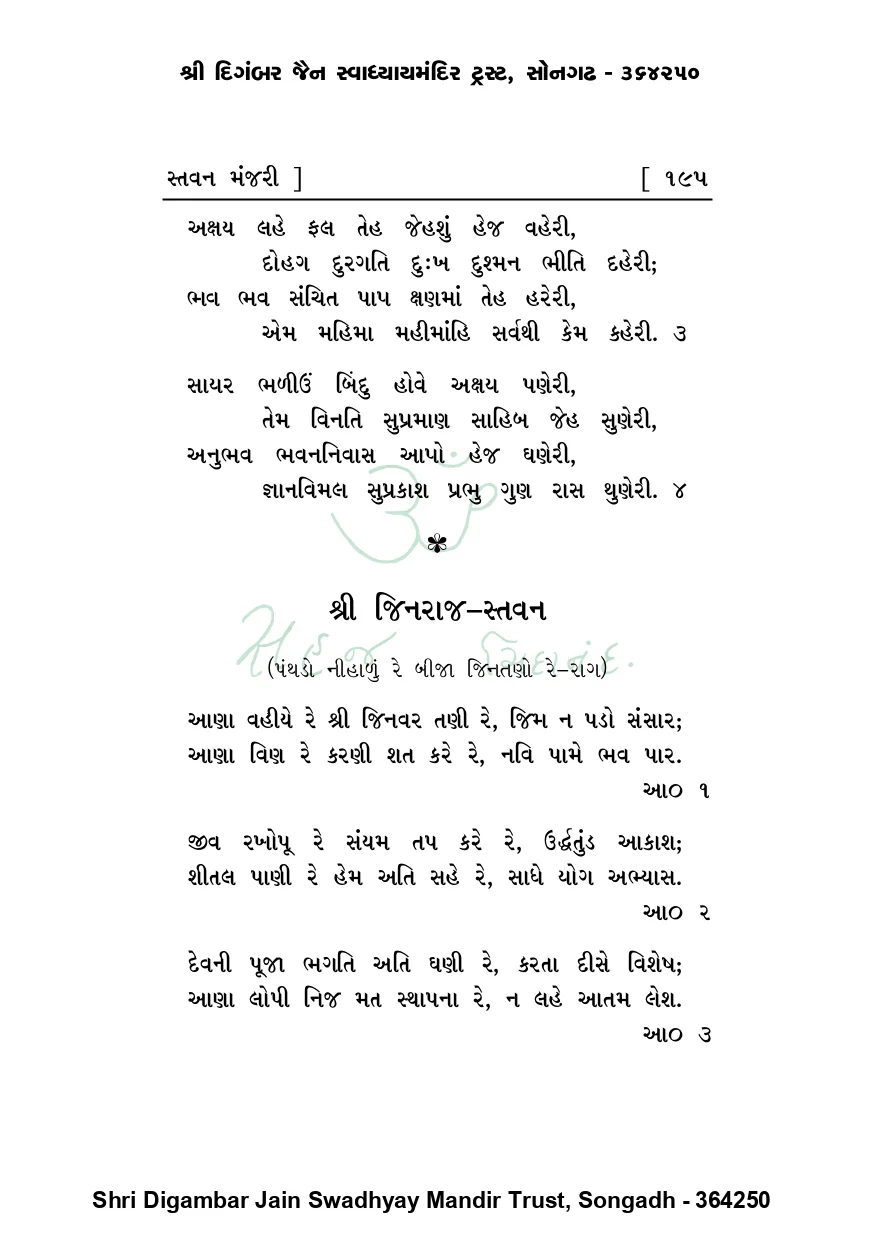 શ્રી દિગંબર જૈન સ્વાધ્યાયમંદિર ટ્રસ્ટ, સોનગઢ - ૩૬૪૨૫૦
સ્તવન મંજરી ] [ ૧૯૫
અક્ષય લહે ફલ તેહ જેહશું હેજ વહેરી,
દોહગ દુરગતિ દુઃખ દુશ્મન ભીતિ દહેરી;
ભવ ભવ સંચિત પાપ ક્ષણમાં તેહ હરેરી,
એમ મહિમા મહીમાંહિ સર્વથી કેમ કહેરી. ૩
સાયર ભળીઉં બિંદુ હોવે અક્ષય પણેરી,
તેમ વિનતિ સુપ્રમાણ સાહિબ જેહ સુણેરી,
અનુભવ ભવનનિવાસ આપો હેજ ઘણેરી,
જ્ઞાનવિમલ સુપ્રકાશ પ્રભુ ગુણ રાસ થુણેરી. ૪
ૐ
✽
શ્રી જિનરાજ–સ્તવન
સહજ ચિદાનંદ.
(પંથડો નીહાળું રે બીજા જિનતણો રે–રાગ)
આણા વહીયે રે શ્રી જિનવર તણી રે, જિમ ન પડો સંસાર;
આણા વિણ રે કરણી શત કરે રે, નવિ પામે ભવ પાર.
આ૦ ૧
જીવ રખોપૂ રે સંયમ તપ કરે રે, ઉર્દ્ધતુંડ આકાશ;
શીતલ પાણી રે હેમ અતિ સહે રે, સાધે યોગ અભ્યાસ.
આ૦ ૨
દેવની પૂજા ભગતિ અતિ ઘણી રે, કરતા દીસે વિશેષ;
આણા લોપી નિજ મત સ્થાપના રે, ન લહે આતમ લેશ.
આ૦ ૩
Shri Digambar Jain Swadhyay Mandir Trust, Songadh - 364250